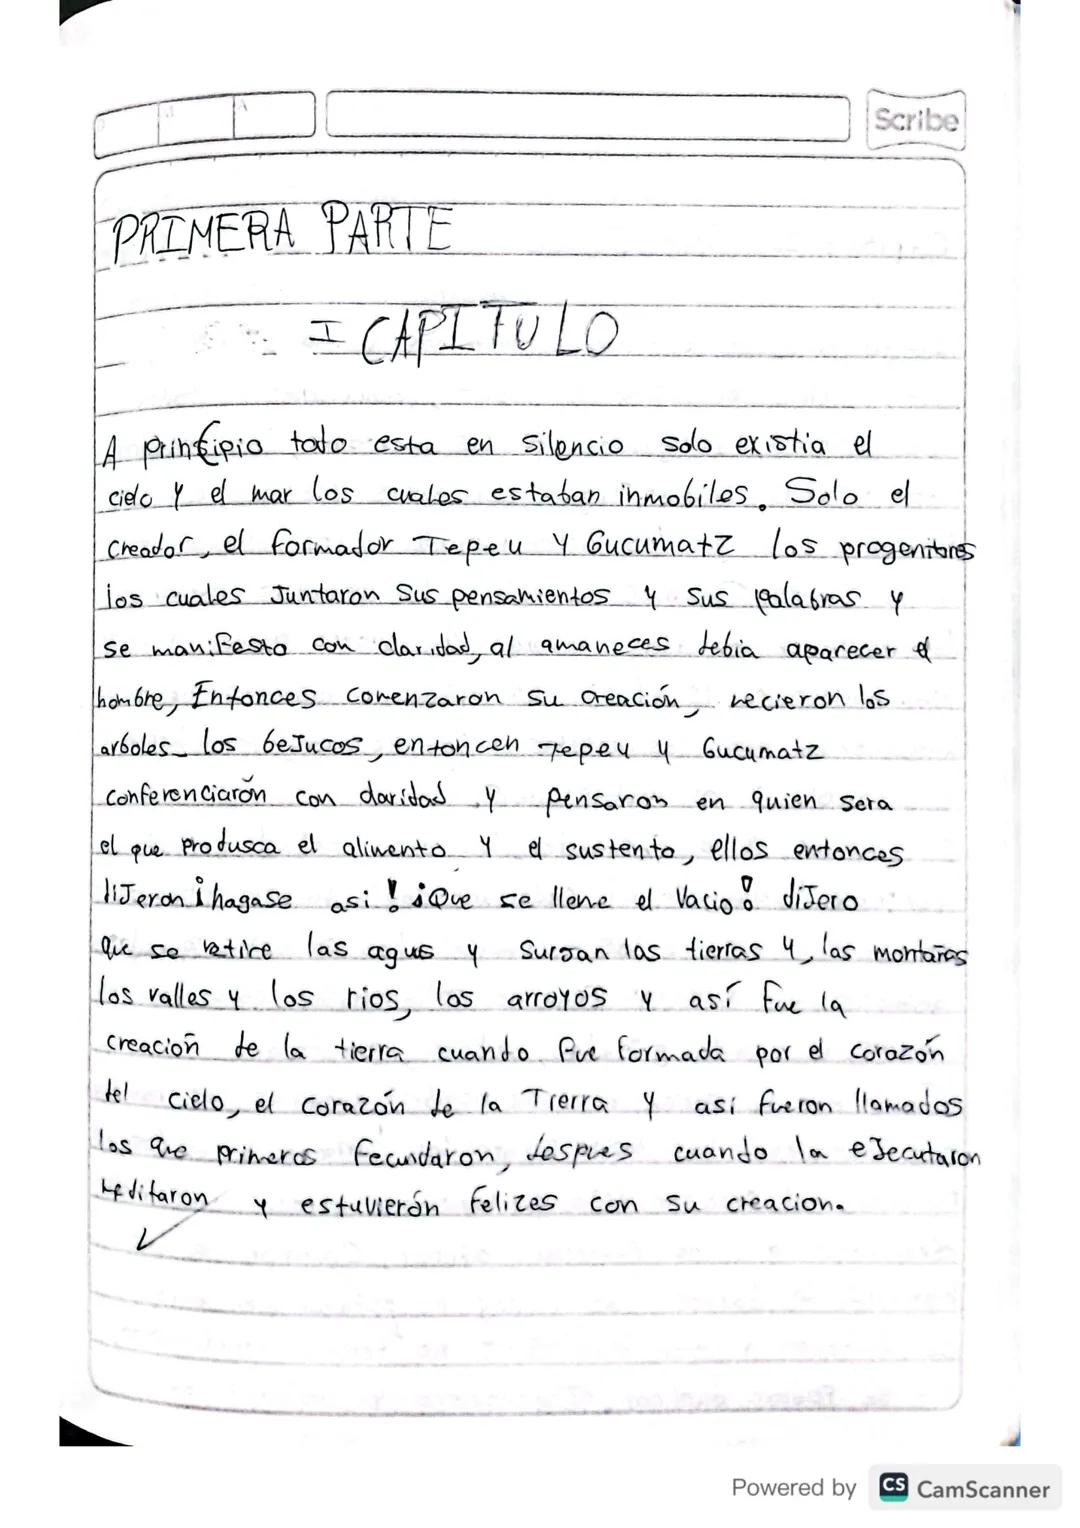 Scribe
PRIMERA PARTE
I CAPITULO
A principio todo esta en silencio solo existia el
cielo y el mar los cuales estaban inmobiles. Solo el
creador, el formador Tepeu y Gucumatz los progenitores
los cuales Juntaron Sus pensamientos y sus palabras y
se manifesto con claridad, al amaneces debia aparecer el
hombre, Entonces comenzaron su creación, necieron los
arboles los beJucos, entoncen Tepeu y Gucumatz
conferenciarón con claridad y pensaron en quien sera
el que produsca el alimento y el sustento, ellos entonces
diJeron ¡hagase asi! ¡Que se llene el Vacio! diJero
que se retire las agus y SurJan las tierras y, las montañas
los valles y los rios, los arroyos y así fue la
creación de la tierra cuando fue formada por el corazón
del cielo, el corazón de la Tierra y así fueron llamados
los que primeros fecundaron, despues cuando la eJecutaron
Meditaron y estuvierón felizes con su creacion.
Powered by CS CamScanner